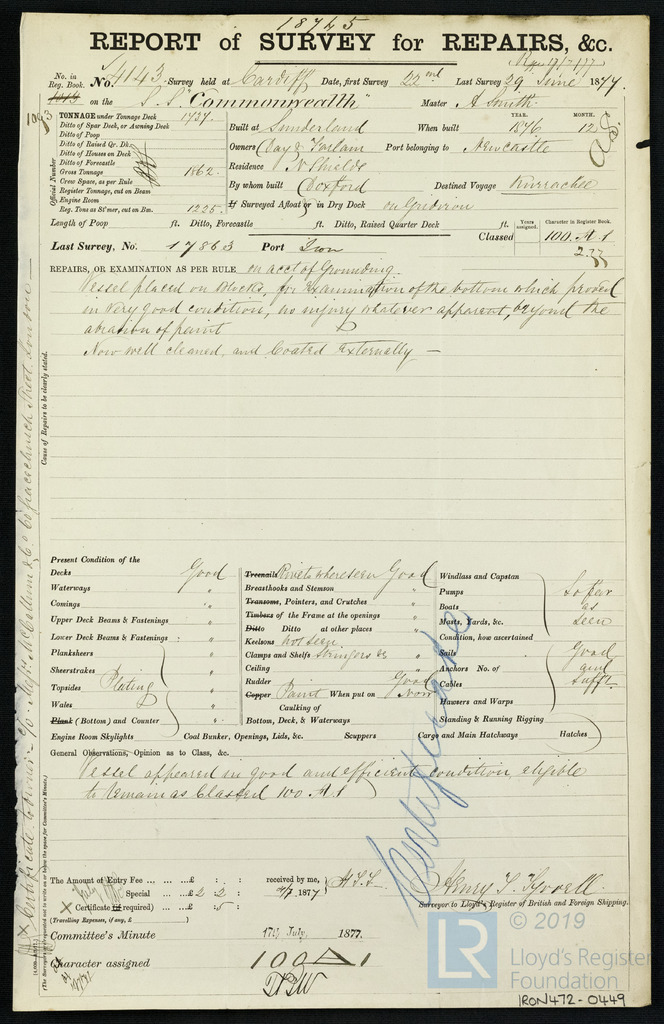 18745
REPORT of SURVEY for REPAIRS, &c.
No. in Reg. Book.
No. 4143 Survey held at Cardiff Date, first Survey 22nd Last Survey 29 June 1877
on the S.S. "Commonwealth" Master A Smith
TONNAGE under Tonnage Deck 1737.
Ditto of Spar Deck, or Awning Deck
Ditto of Poop
Ditto of Raised Qr. Dk.
Ditto of Houses on Deck
Ditto of Forecastle
Gross Tonnage 1862.
Crew Space, as per Rule
Register Tonnage, cut on Beam
Engine Room
Reg. Tons as St'mer, cut on Bm. 1225.
Official Number
YEAR. MONTH.
Built at Sunderland When built 1876 12
Owners Port belonging to Newcastle
Residence N Shields
By whom built Doxford Destined Voyage Kurrachee
If Surveyed Afloat or in Dry Dock on Gridiron
Length of Poop ft. Ditto, Forecastle ft. Ditto, Raised Quarter Deck ft.
Years assigned. Character in Register Book.
Classed 100 A.1
2.77
Last Survey, No. 17863 Port Lon
REPAIRS, OR EXAMINATION AS PER RULE on acct of Grounding.
Vessel placed on blocks, for examination of the bottom which proved
in very good condition, no injury whatever apparent, beyond the
abrasion of paint
Now well cleaned, and Coated Externally —
Cause of Repairs to be clearly stated.
Present Condition of the
Decks Good
Waterways "
Comings "
Upper Deck Beams & Fastenings "
Lower Deck Beams & Fastenings "
Planksheers
Sheerstrakes
Topsides Plating "
Wales
Plank (Bottom) and Counter
Engine Room Skylights Coal Bunker, Openings, Lids, &c. Scuppers Cargo and Main Hatchways Hatches
Treenails Rivets where seen Good
Breasthooks and Stemson "
Transoms, Pointers, and Crutches "
Timbers of the Frame at the openings "
Ditto Ditto at other places "
Keelsons not seen
Clamps and Shelfs Stringers &c "
Ceiling "
Rudder Good
Copper Paint When put on Now
Caulking of
Bottom, Deck, & Waterways
Windlass and Capstan
Pumps So far
Boats as
Masts, Yards, &c. seen
Condition, how ascertained
Sails Good
Anchors No. of and
Cables sufft.
Hawsers and Warps
Standing & Running Rigging
General Observations, Opinion as to Class, &c.
Vessel appeared in good and efficient condition, eligible
to remain as Classed 100 A.1
Certificate
The Amount of Entry Fee £ : : received by me,
Special £ 2 2 : 1877
× Certificate (if required) : 5 :
(Travelling Expenses, if any, £ )
Henry S. Tyrrell.
Surveyor to Lloyd's Register of British and Foreign Shipping.
Committee's Minute 17th July 1877.
Character assigned 100 A 1
© 2019
LR
Lloyd's Register
Foundation
IRON472-0449